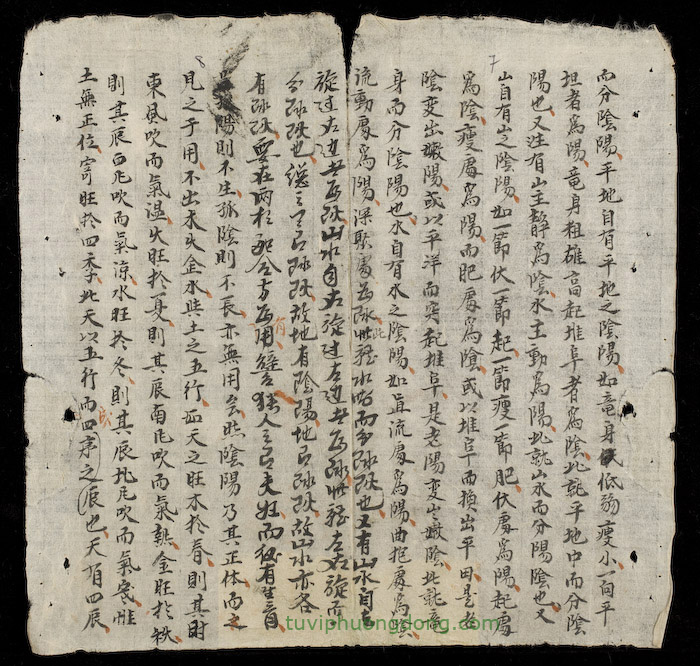 7
而分陰陽平地自有平地之陰陽如竜身低弱瘦小一向平
坦者為陽竜身粗雄高起堆阜者為陰此就平地中而分陰
陽也又注有山主靜為陰水主動為陽此就山水而分陽陰也又
山自有山之陰陽如一節伏一節起一節瘦一節肥伏處為陽起處
為陰瘦處為陽而肥處為陰或以堆阜而換出平田是老
陰变出嫩陽或以平洋而突起堆阜是老陽变出嫩陰此就龍
身而分陰陽也水自有水之陰陽如直流處為陽曲抱處為陰
流動處為陽深聚處為此水而分也又有山水自右
旋过左边為山水自右旋过左边為左右旋
分也地有陰陽地山水亦各
有要在兩相配合方為用譬猶人之有夫妇而後有生育
陽則不生孤陰則不長亦無用矣然陰陽乃其正体而之
8
見之于用不出木火金水與土之五行如天之旺木於春則其时
東風吹而氣温火旺於夏則其辰南風吹而氣熱金旺於秋
則其辰西風吹而氣涼水旺於冬則其辰北風吹而氣寒惟
土無正位寄旺於四季此天以五行而四序之辰也天有四辰
tuviphuongdong.com